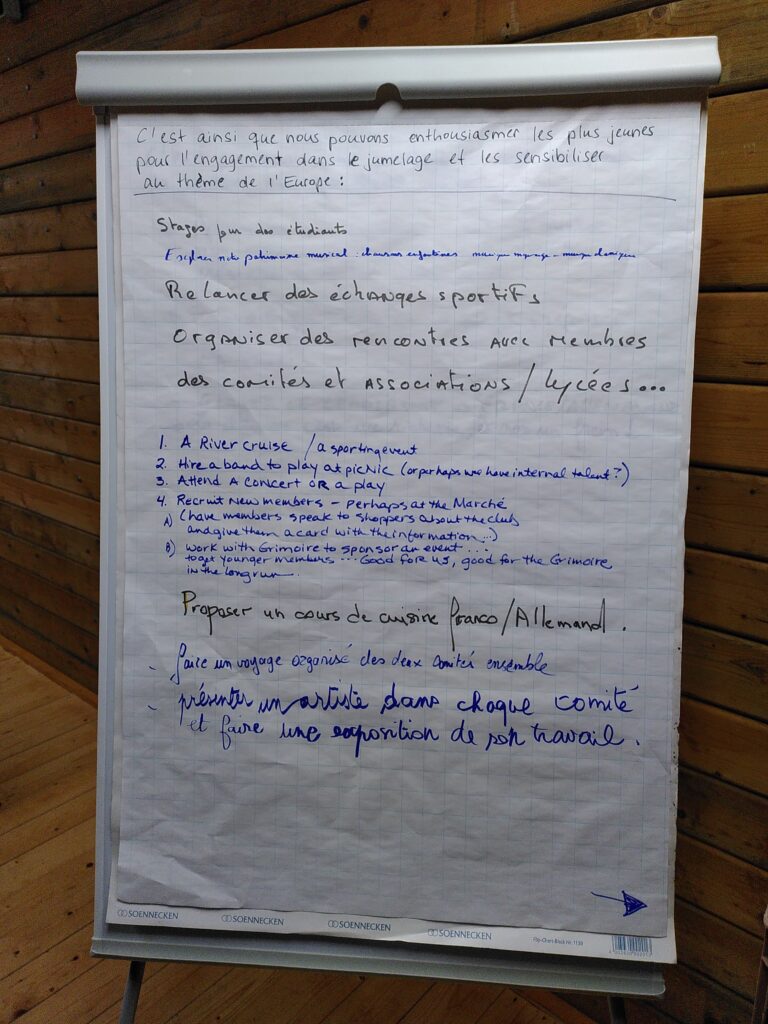 C'est ainsi que nous pouvons enthousiasmer les plus jeunes
pour l'engagement dans le jumelage et les sensibiliser
au thème de l'Europe :
Stages pour des étudiants
patrimoine musical : chansons enfantines
Relancer des échanges sportifs
Organiser des rencontres avec membres
des comités et associations / Lycées...
1. A River cruise / a sporting event
2. Hire a band to play at picnic (or perhaps we have internal talent?)
3. Attend a concert or a play
4. Recruit new members - perhaps at the Marché
A) (have members speak to shoppers about the club
and give them a card with the information...)
B) work with Grimoire to sponsor an event...
to get younger members ... Good for us, good for the Grimoire
in the long run.
Proposer un cours de cuisine franco/Allemand.
- faire un voyage organisé des deux comités ensemble
- présenter un artiste dans chaque comité
et faire une exposition de son travail.
SOENNECKEN SOENNECKEN SOENNECKEN SOENNECKEN Flip-Chart-Block Nr. 1130